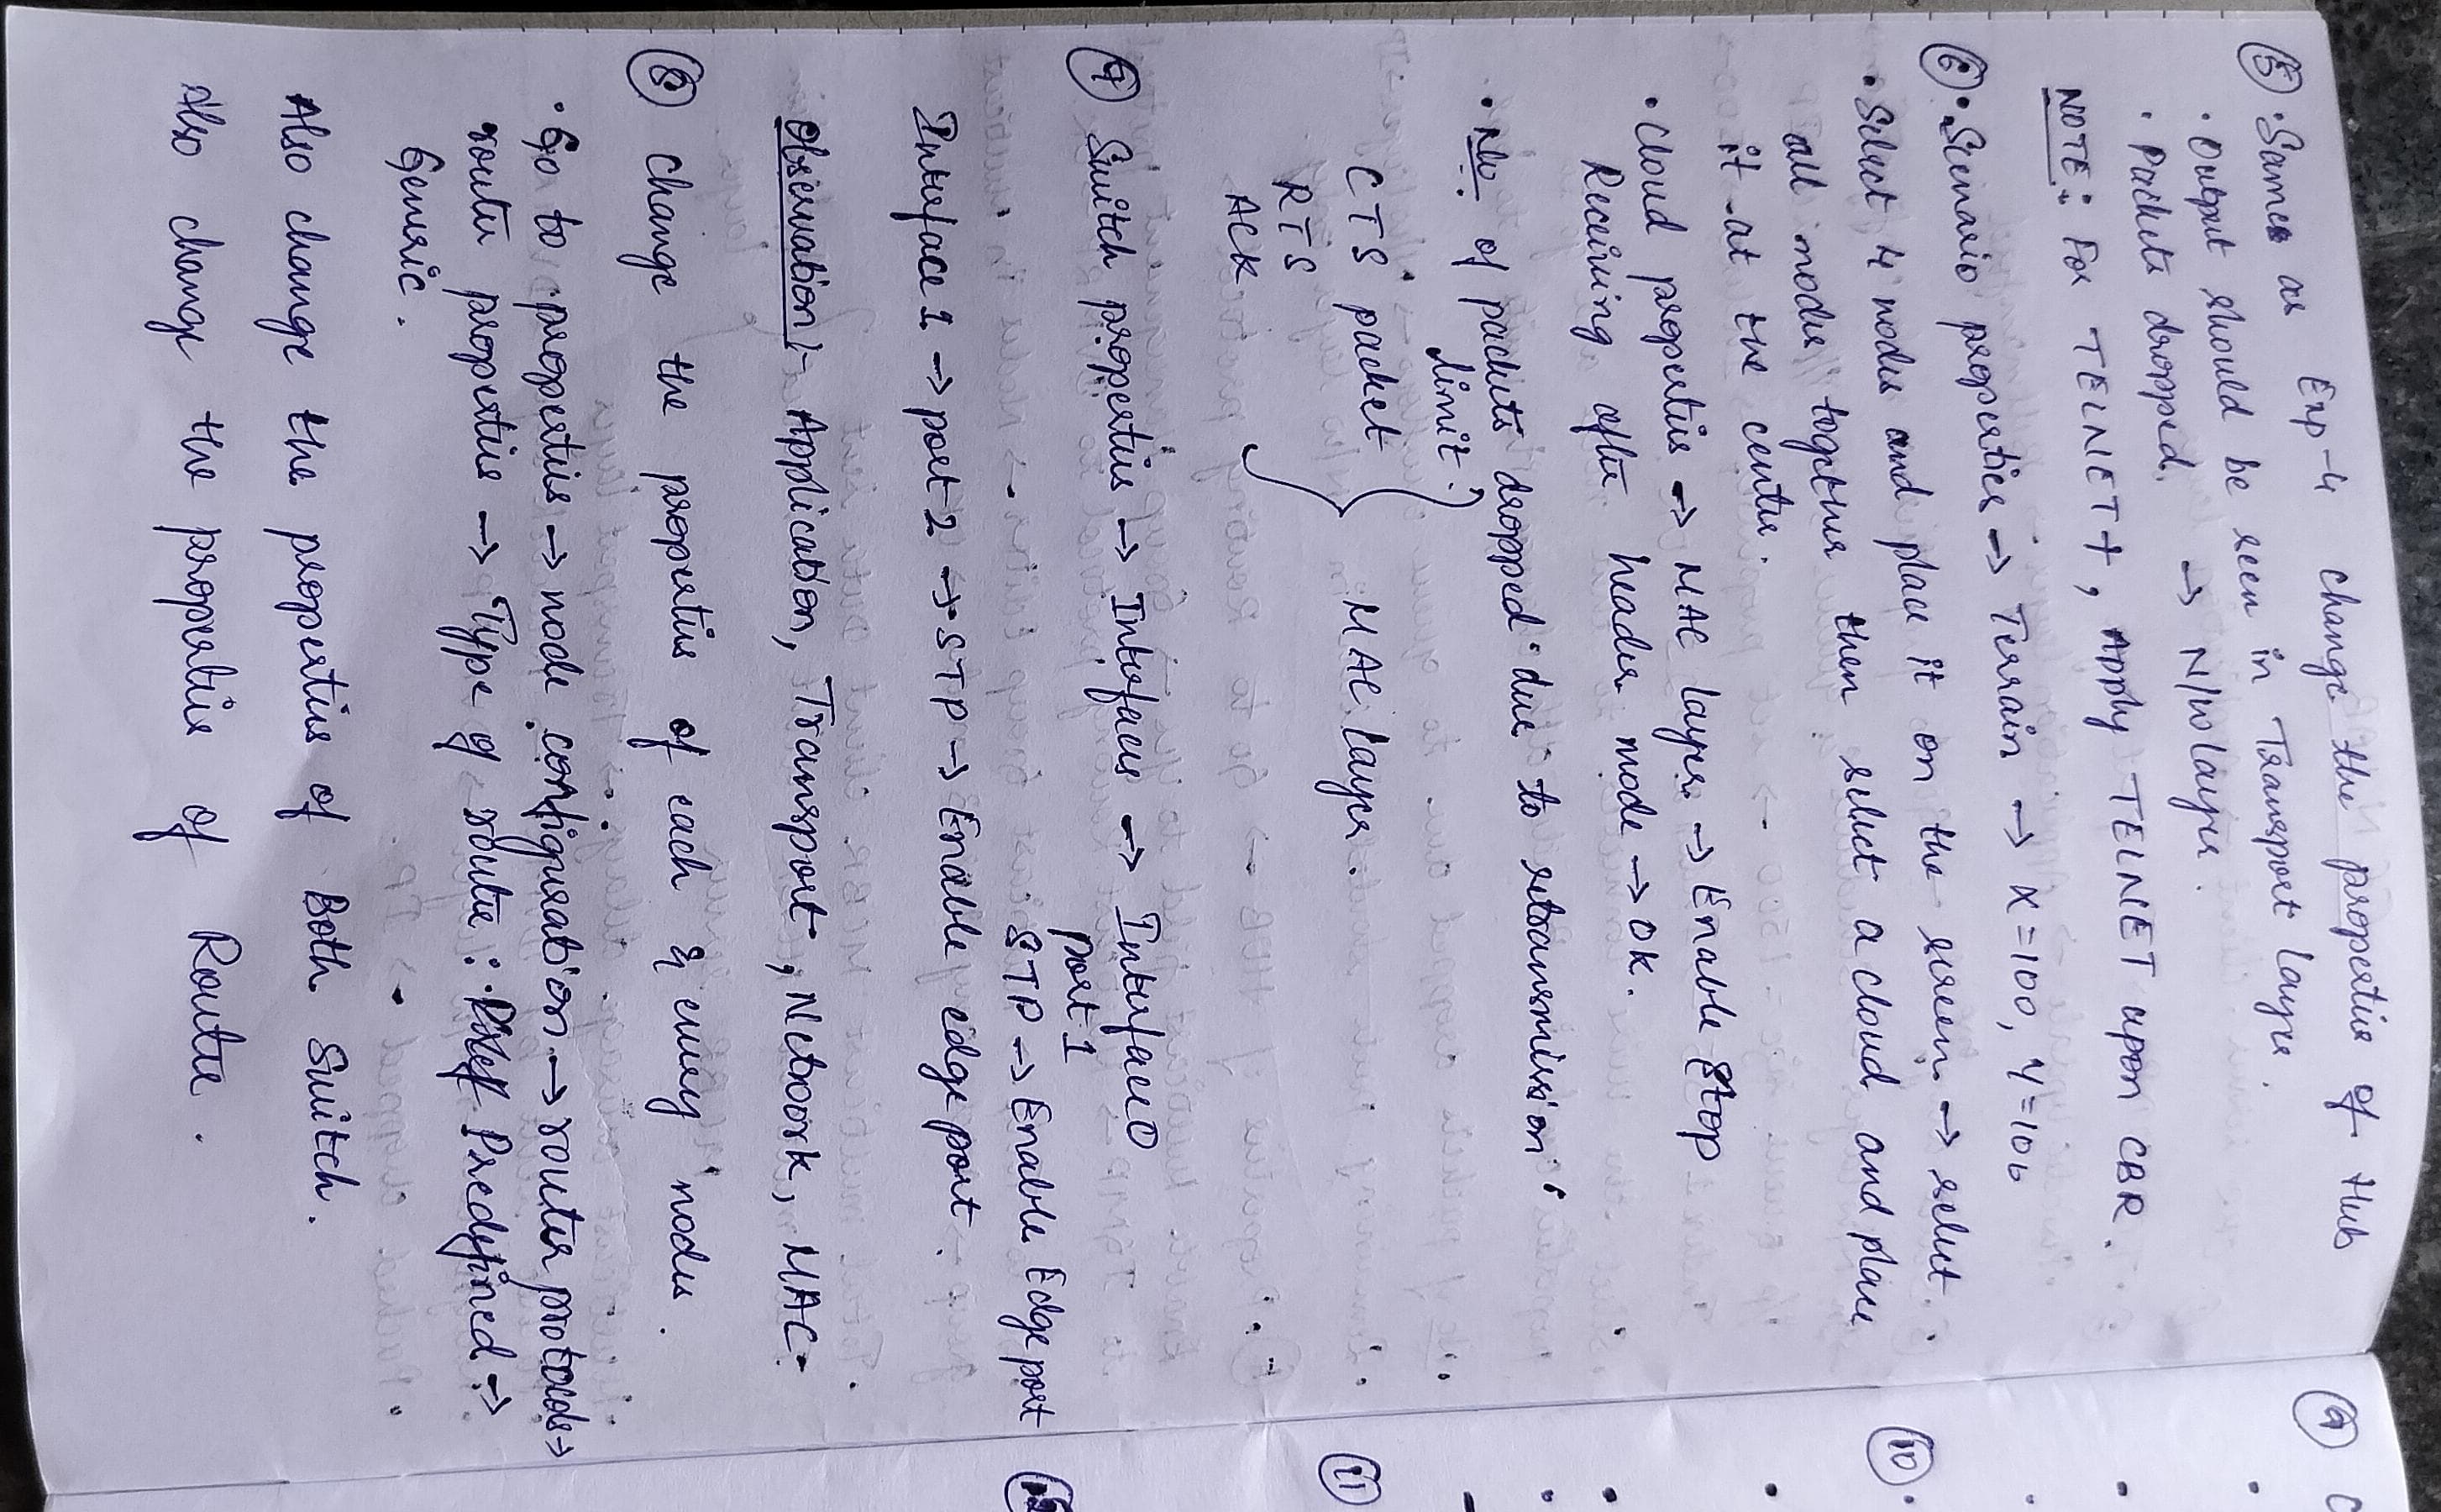 ⑤ • Same as Exp-4 change the properties of Hub
• Output should be seen in Transport layer.
• Packets dropped. → N/W layer.
NOTE: For TELNET+, Apply TELNET upon CBR.
⑥ • Scenario properties → Terrain → X=100, Y=100
• Select 4 nodes and place it on the screen → select
all nodes together then select a cloud and place
it at the center.
• Cloud properties → MAC layer → Enable Stop
Receiving after header mode → OK.
• No. of packets dropped due to retransmission
limit.
CTS packet
RTS
ACK
} MAC layer.
⑦ Switch properties → Interfaces → Interface 0
port 1
STP → Enable Edge port
Interface 1 → port 2 → STP → Enable edge port.
Observation:- Application, Transport, Network, MAC.
⑧ Change the properties of each & every nodes.
• Go to properties → node configuration → router protocols →
router properties → Type of router : Predefined →
Generic.
Also change the properties of Both Switch.
Also change the properties of Router.
⑨
⑩
⑪